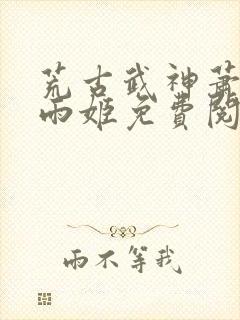 荒古武神萧
雨姬免費閱
雨不等我